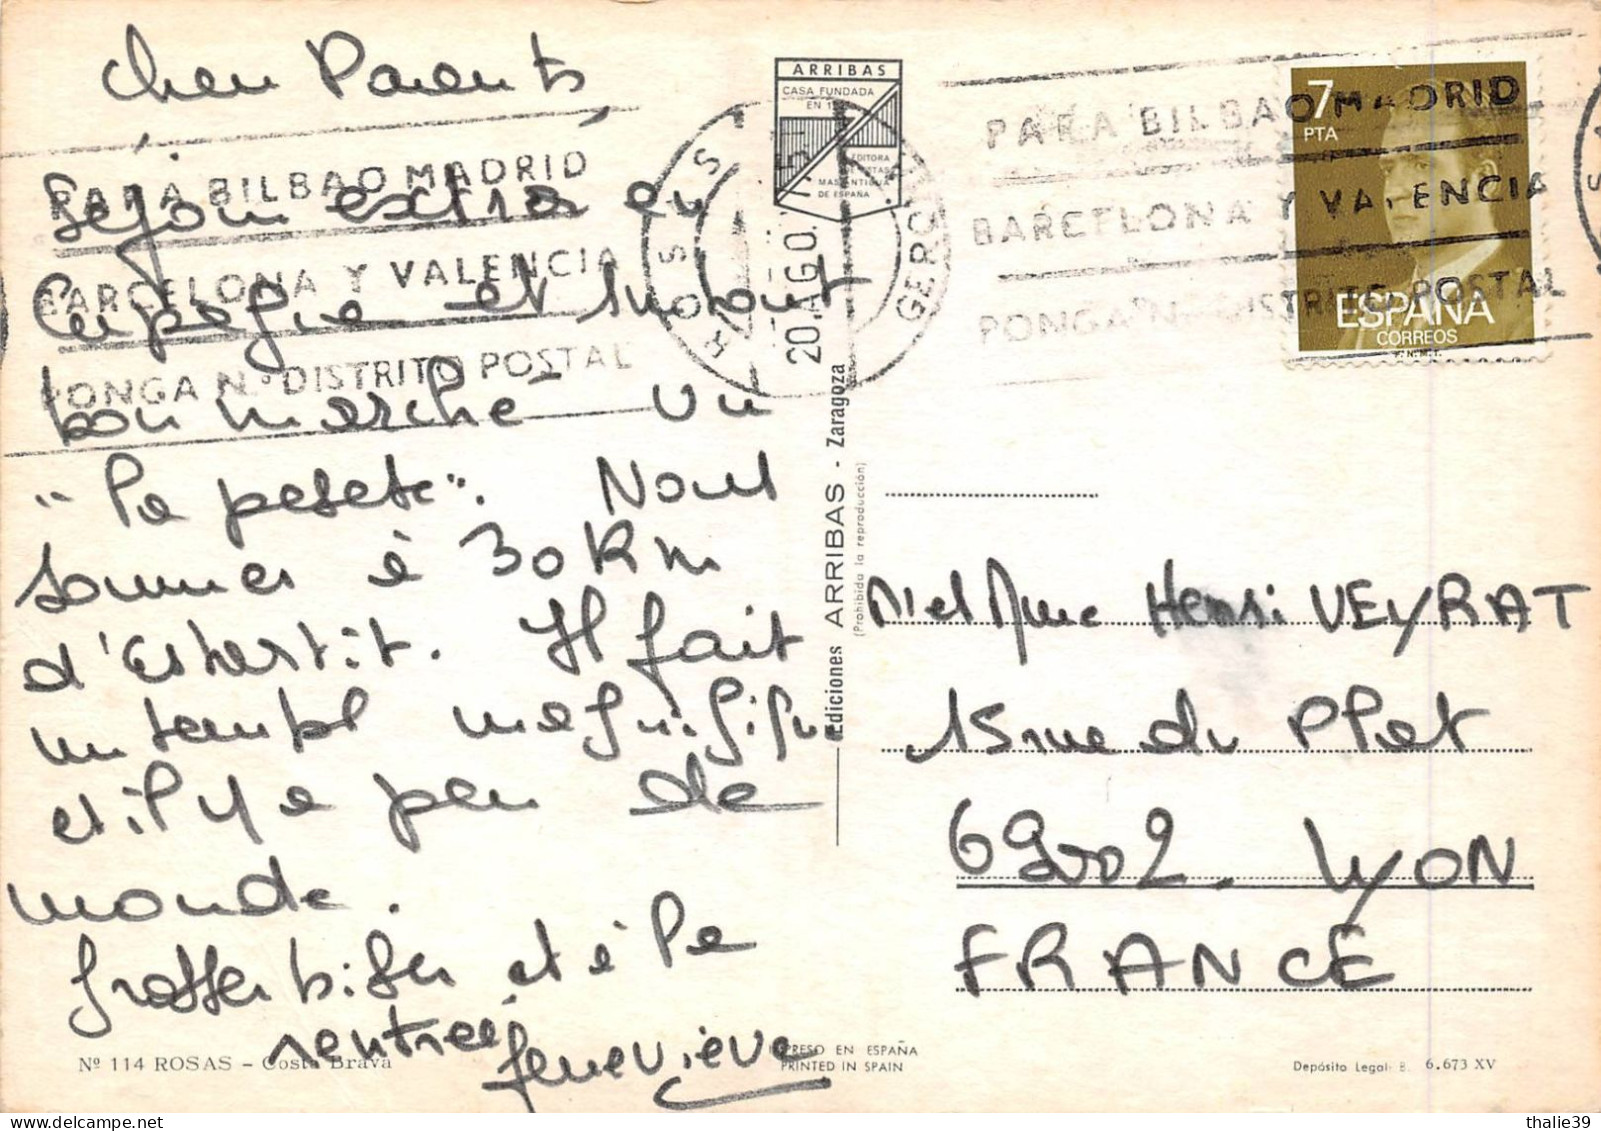 Chers Parents,
Séjour extra en
Espagne et surtout
bon marché vu
"la peseta". Nous
sommes à 30 km
d'Estartit. Il fait
un temps magnifique
et il y a peu de
monde.
Grosses bises et à la
rentrée,
Geneviève
Nº 114 ROSAS – Costa Brava
ARRIBAS
CASA FUNDADA
EN
EDITORA
MAS ANTIGUA
DE ESPAÑA
PARA BILBAO MADRID
BARCELONA Y VALENCIA
PONGA N.º DISTRITO POSTAL
ROSAS
20 AGO.
GERONA
PARA BILBAO MADRID
BARCELONA Y VALENCIA
PONGA N.º DISTRITO POSTAL
7
PTA
ESPAÑA
CORREOS
F.N.M.T.
Ediciones ARRIBAS - Zaragoza
(Prohibida la reproducción)
M et Mme Henri VEYRAT
15 rue du Plat
69002. LYON
FRANCE
IMPRESO EN ESPAÑA
PRINTED IN SPAIN
Depósito Legal: B. 6.673 XV
thalie39